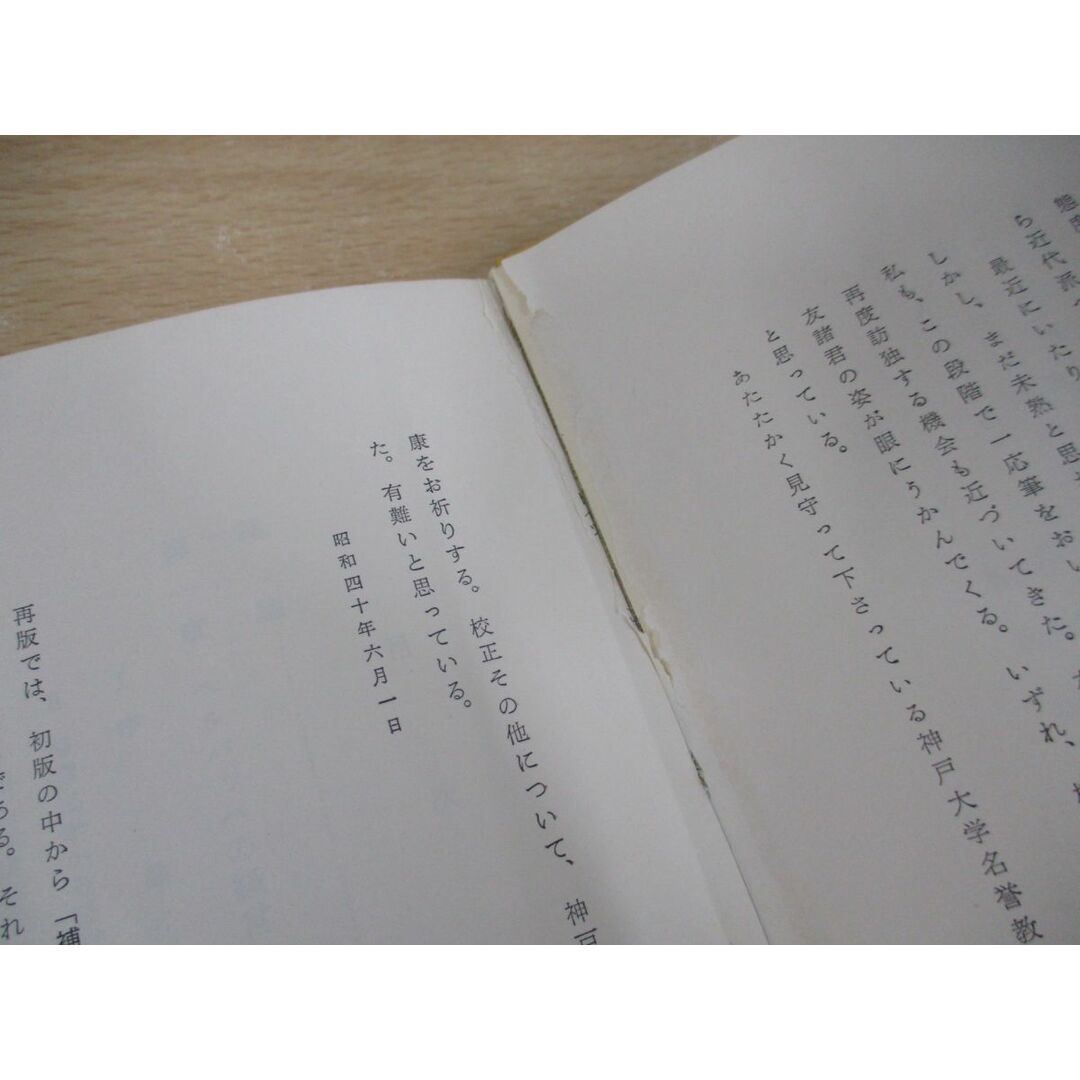 ら近代派
最近にいたり
しかし、まだ未熟と思
私も、この段階で一応筆をおい
再度訪独する機会も近づいてきた。
友諸君の姿が眼にうかんでくる。いずれ、
と思っている。
あたたかく見守って下さっている神戸大学名誉教
康をお祈りする。校正その他について、神戸
た。有難いと思っている。
昭和四十年六月一日
再版では、初版の中から「補
である。それ